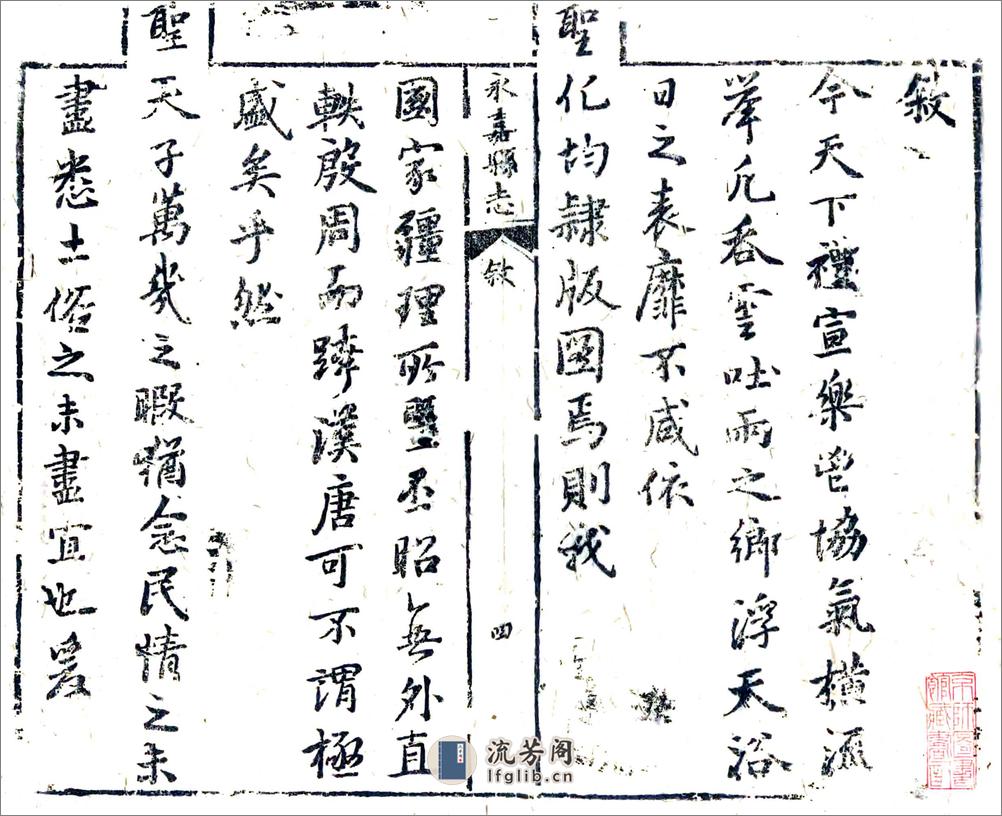 敘
今天下禮宣樂鬯協氣橫流
举凡吞雲吐雨之鄉浮天浴
日之表靡不咸依
聖化均隷版圖焉則我
永嘉縣志
敘
四
國家疆理所曁丕昭無外直
軼殷周而跨漢唐可不謂極
盛矣乎然
聖天子萬幾之暇猶念民情之未
盡悉土俗之未盡宜也爰
京師圖書
館藏書印
流芳阁
lfglib.cn